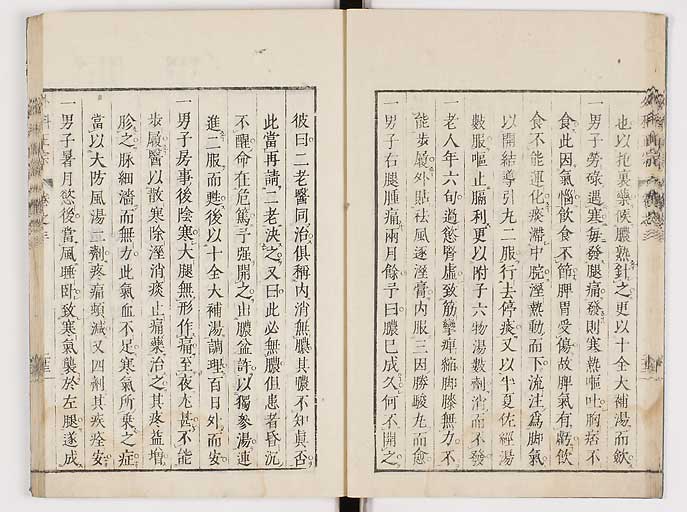 也以托裏藥候膿熟針之更以十全大補湯而斂
一男子勞碌遇寒毎發腿痛發則寒熱嘔吐胸痞不
食此因氣惱飲食不節脾胃受傷故脾氣有虧飲
食不能運化痰滯中脘溼熱動而下流注爲脚氣
以開結導引丸二服行去停痰又以半夏佐經湯
數服嘔止膈利更以附子六物湯數劑消而不發
一老人年六旬過慾腎虛致筋攣痺縮脚膝無力不
能步履外貼袪風逐溼膏内服三因勝駿丸而愈
一男子右腿腫痛兩月餘予曰膿已成久何不開之
彼曰二老醫同治俱稱内消無膿其膿不知真否
此當再請二老決之又曰此必無膿但患者昏沉
不醒命在危篤予强開之出膿盆許以獨參湯連
進二服而甦後以十全大補湯調理百日外而安
一男子房事後陰寒大腿無形作痛至夜尤甚不能
步履醫以散寒除溼消痰止痛藥治之其疼益增
胗之脉細濇而無力此氣血不足寒氣所乗之症
當以大防風湯二劑疼痛頓減又四劑其疾痊安
一男子暑月慾後當風睡卧致寒氣襲於左腿遂成